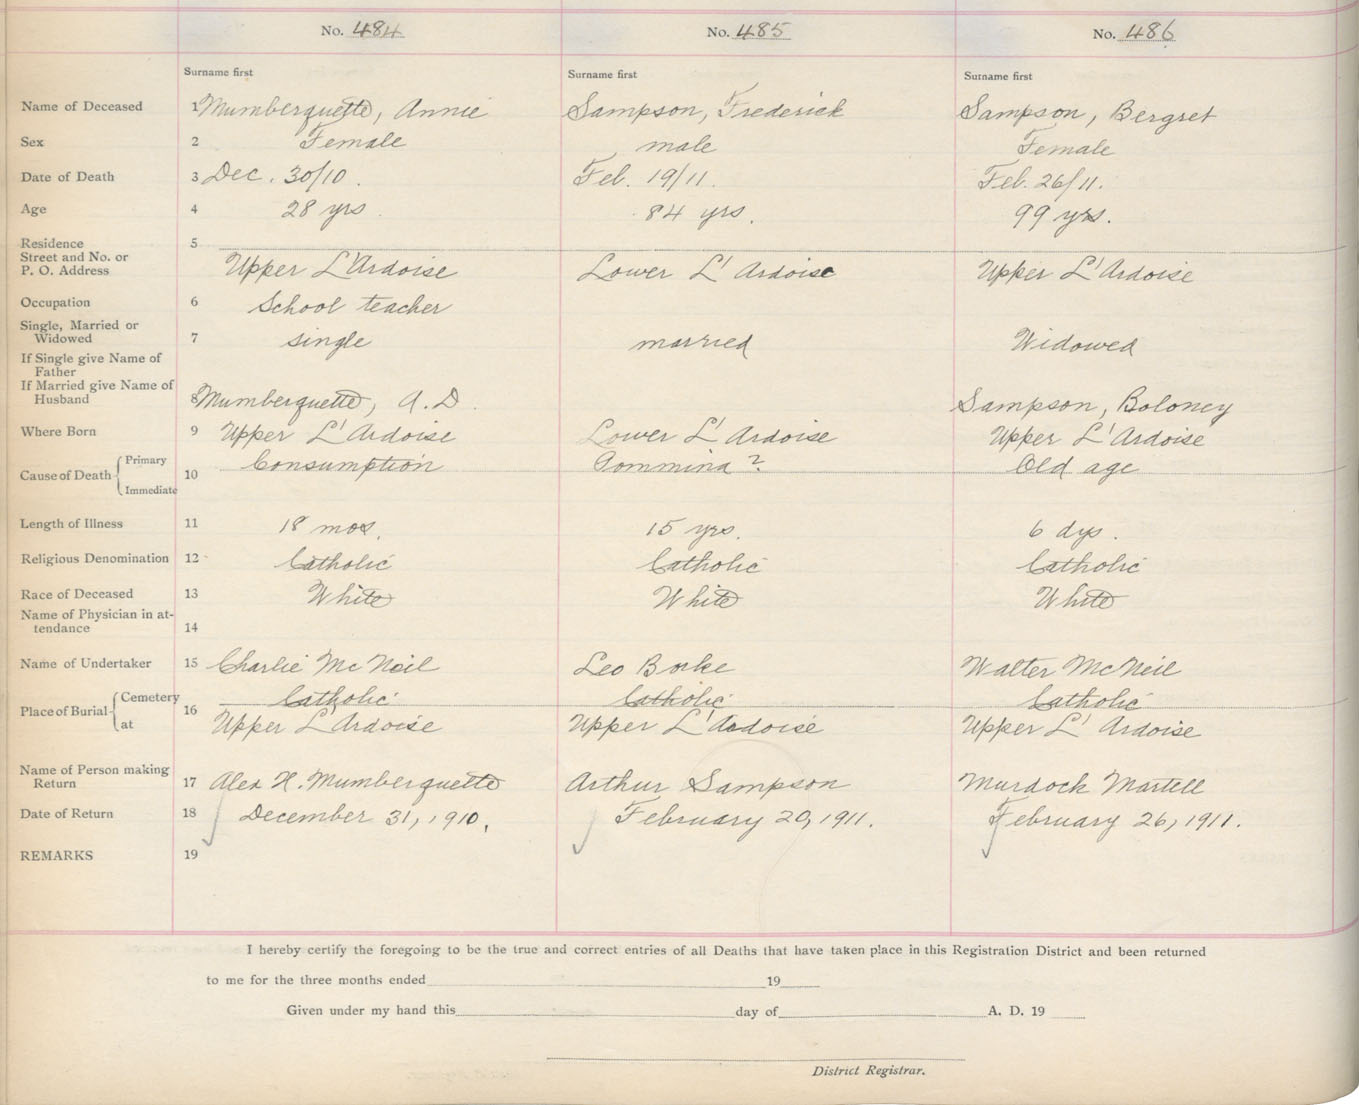 No. 484 No. 485 No. 486
Surname first Surname first Surname first
Name of Deceased 1 Mumberquette, Annie Sampson, Frederick Sampson, Bergret
Sex 2 Female male Female
Date of Death 3 Dec. 30/10. Feb. 19/11. Feb. 26/11.
Age 4 28 yrs. 84 yrs. 99 yrs.
Residence 5
Street and No. or
P. O. Address Upper L'Ardoise Lower L'Ardoise Upper L'Ardoise
Occupation 6 School teacher
Single, Married or
Widowed 7 single married Widowed
If Single give Name of
Father
If Married give Name of
Husband 8 Mumberquette, A.D. Sampson, Boloney
Where Born 9 Upper L'Ardoise Lower L'Ardoise Upper L'Ardoise
Cause of Death { Primary Consumption Pommina? Old age
10
Immediate
Length of Illness 11 18 mos. 15 yrs. 6 dys.
Religious Denomination 12 Catholic Catholic Catholic
Race of Deceased 13 White White White
Name of Physician in at-
tendance 14
Name of Undertaker 15 Charlie McNeil Leo Walter McNeil
Place of Burial { Cemetery 16 Catholic Catholic Catholic
at Upper L'Ardoise Upper L'Ardoise Upper L'Ardoise
Name of Person making
Return 17 Alex H. Mumberquette Arthur Sampson Murdock Martell
Date of Return 18 December 31, 1910. February 20, 1911. February 26, 1911.
REMARKS 19
I hereby certify the foregoing to be the true and correct entries of all Deaths that have taken place in this Registration District and been returned
to me for the three months ended 19
Given under my hand this day of A. D. 19
District Registrar.